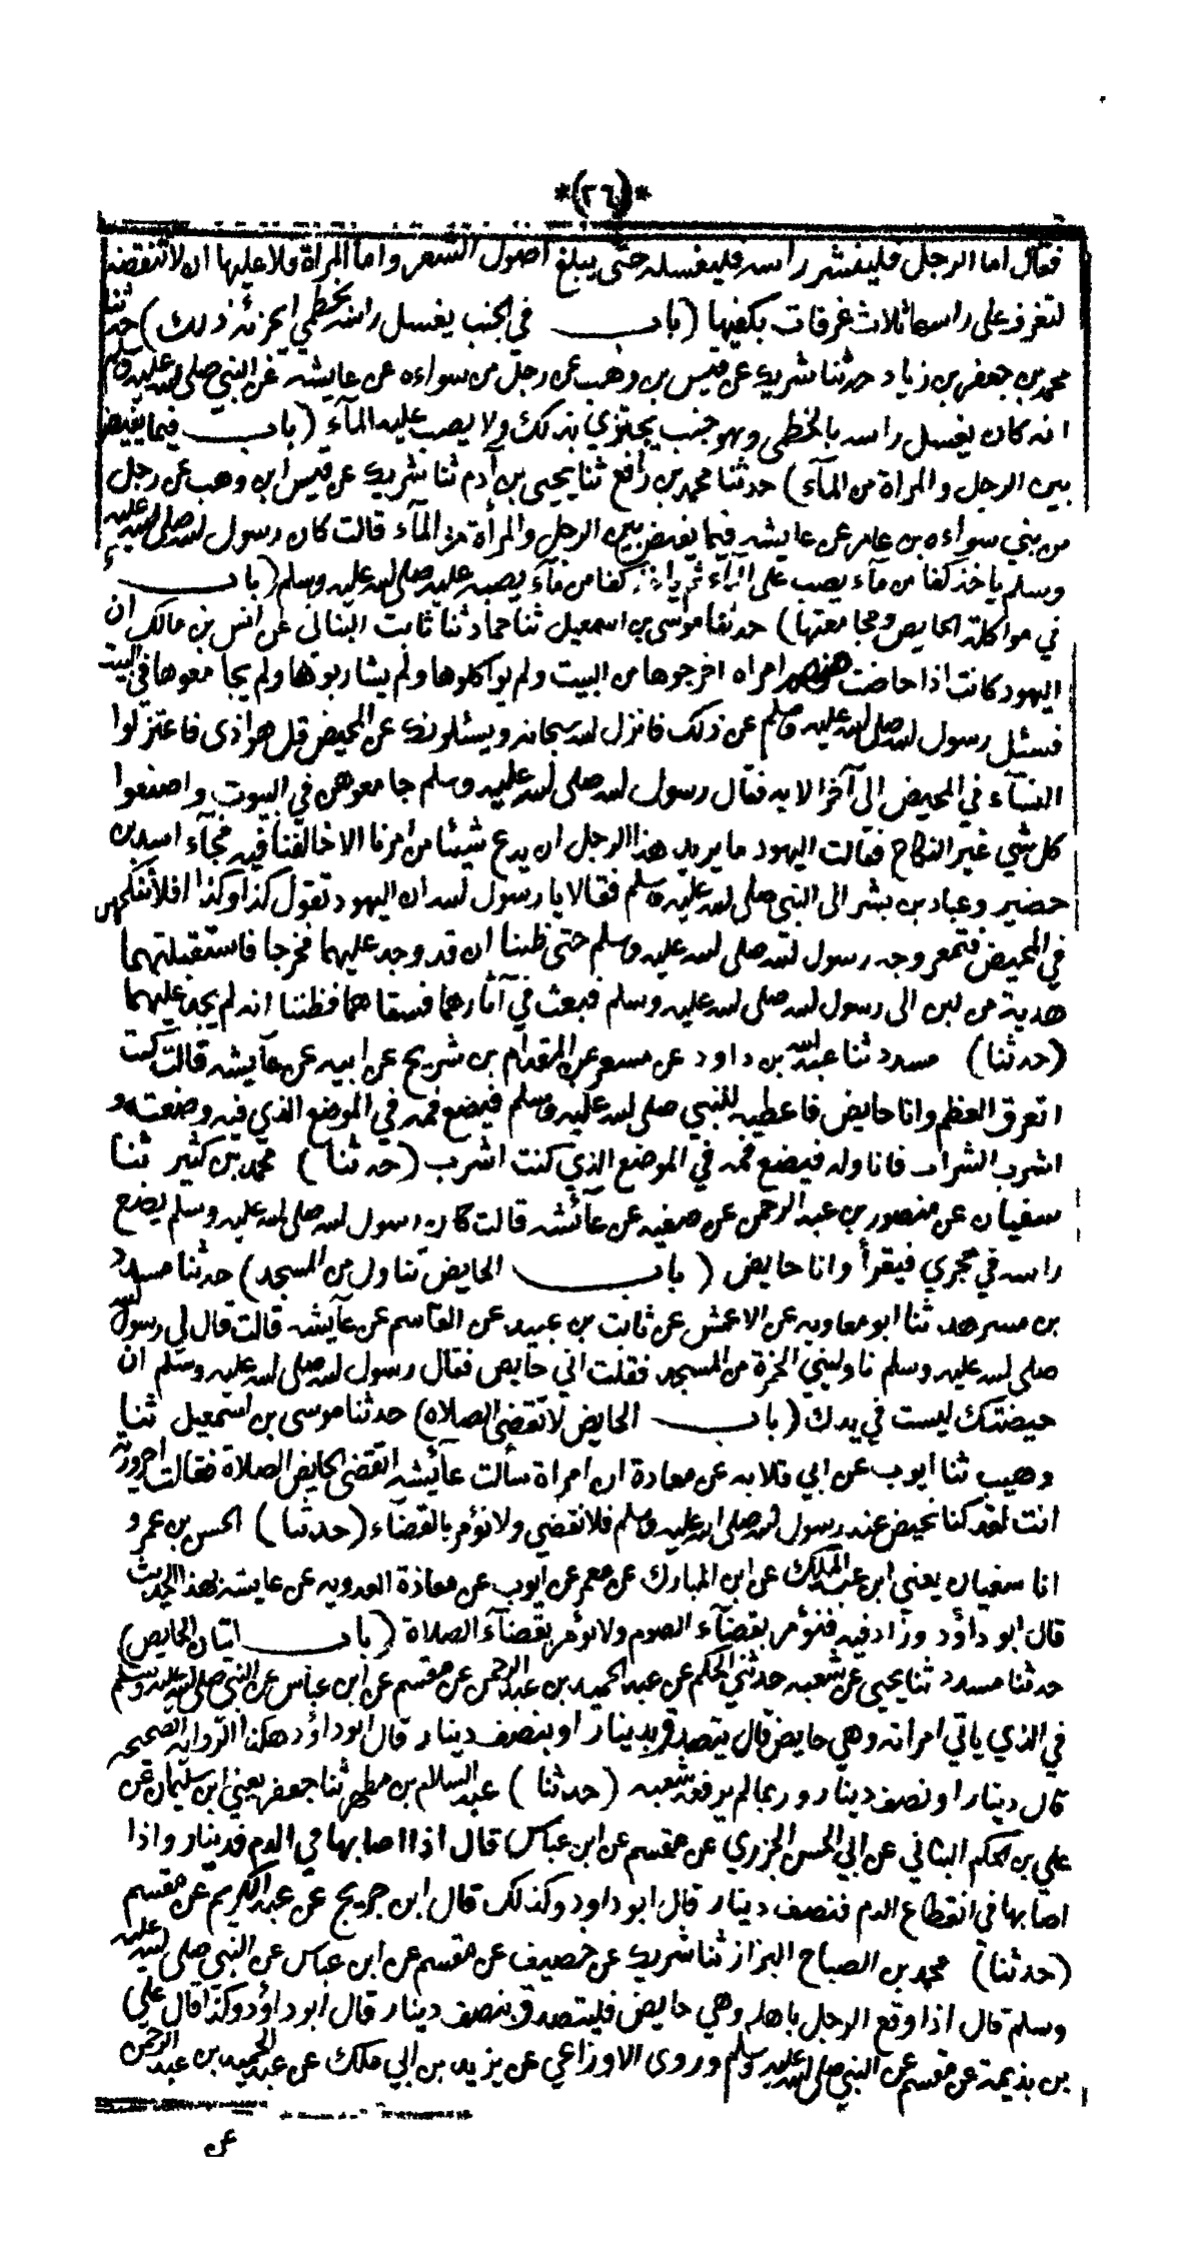 *(٢٦)*
فقال اما الرجل فلينشر راسه فليغسله حتى يبلغ اصول الشعر واما المراة فلا عليها ان لا تنقضه
لتغرف على راسها ثلاث غرفات بكفيها (باب في الجنب يغسل راسه بخطمي ايجزئه ذلك) حدثنا
محمد بن جعفر بن زياد حدثنا شريك عن قيس بن وهب عن رجل من سواءه عن عايشة عن النبي صلى الله عليه وسلم
انه كان يغسل راسه بالخطمى وهو جنب يجتزي بذلك ولا يصب عليه المآء (باب فيما يفيض
بين الرجل والمراة من المآء) حدثنا محمد بن رافع ثنا يحيى بن آدم ثنا شريك عن قيس ابن وهب عن رجل
من بني سواءه بن عامر عن عايشه فيما يفيض بين الرجل والمرأة من المآء قالت كان رسول الله صلى الله عليه
وسلم ياخذ كفا من مآء يصب على المآء ثم ياخذ كفا من مآء يصبه عليه صلى الله عليه وسلم (باب
في مواكلة الحايض ومجامعتها) حدثنا موسى بن اسمعيل ثنا حماد ثنا ثابت البناني عن انس بن مالك ان
اليهود كانت اذا حاضت منهم امراه اخرجوها من البيت ولم يواكلوها ولم يشاربوها ولم يجامعوها في البيت
فسئل رسول الله صلى الله عليه وسلم عن ذلك فانزل الله سبحانه ويسئلونك عن المحيض قل هو اذى فاعتزلوا
النسآء في المحيض الى آخر الايه فقال رسول الله صلى الله عليه وسلم جامعوهن في البيوت واصنعوا
كل شي غير النكاح فقالت اليهود ما يريد هذا الرجل ان يدع شيئا من امرنا الا خالفنا فيه فجآء اسيد بن
حضير وعباد بن بشر الى النبي صلى الله عليه وسلم فقالا يا رسول الله ان اليهود تقول كذا وكذا افلا ننكحهن
في المحيض فتمعر وجه رسول الله صلى الله عليه وسلم حتى ظننا ان قد وجد عليهما فخرجا فاستقبلتهما
هدية من لبن الى رسول الله صلى الله عليه وسلم فبعث في آثارهما فسقاهما فظننا انه لم يجد عليهما
(حدثنا) مسدد ثنا عبد الله بن داود عن مسعر عن المقدام بن شريح عن ابيه عن عآيشه قالت كنت
اتعرق العظم وانا حايض فاعطيه للنبي صلى الله عليه وسلم فيضع فمه في الموضع الذي فيه وضعته و
اشرب الشراب فاناوله فيضع فمه في الموضع الذي كنت اشرب (حدثنا) محمد بن كثير ثنا
سفيان عن منصور بن عبد الرحمن عن صفيه عن عآئشه قالت كان رسول الله صلى الله عليه وسلم يضع
راسه في حجري فيقرأ وانا حايض (باب الحايض تناول من المسجد) حدثنا مسدد
بن مسرهد ثنا ابو معاويه عن الاعمش عن ثابت بن عبيد عن القاسم عن عآيشه قالت قال لي رسول الله
صلى الله عليه وسلم ناوليني الخمرة من المسجد فقلت اني حايض فقال رسول الله صلى الله عليه وسلم ان
حيضتك ليست في يدك (باب الحايض لا تقضى الصلاه) حدثنا موسى بن اسمعيل ثنا
وهيب ثنا ايوب عن ابي قلابه عن معادة ان امراة سألت عآئيشه اتقضي الحايض الصلاة فقالت احرورية
انت لقد كنا نحيض عند رسول الله صلى الله عليه وسلم فلا نقضي ولا نؤمر بالقضآء (حدثنا) الحسن بن عمرو
انا سفيان يعني ابن عبد الملك عن ابن المبارك عن معمر عن ايوب عن معاذة العدويه عن عايشة بهذا الحديث
قال ابو داؤد وزاد فيه فنؤمر بقضآء الصوم ولا نؤمر بقضآء الصلاة (باب اتيان الحايض)
حدثنا مسدد ثنا يحيى عن شعبه حدثني الحكم عن عبد الحميد بن عبد الرحمن عن مقسم عن ابن عباس عن النبي صلى الله عليه وسلم
في الذي ياتي امراته وهي حايض قال يتصدق بدينار او بنصف دينار قال ابو داؤد هكذا الروايه الصحيحه
قال دينار او نصف دينار وربما لم يرفعه شعبه (حدثنا) عبد السلام بن مطهر ثنا جعفر يعني ابن سليمان عن
علي بن الحكم البناني عن ابي الحسن الجزري عن مقسم عن ابن عباس قال اذا اصابها في الدم فدينار واذا
اصابها في انقطاع الدم فنصف دينار قال ابو داود وكذلك قال ابن جريج عن عبد الكريم عن مقسم
(حدثنا) محمد بن الصباح البزاز ثنا شريك عن خصيف عن مقسم عن ابن عباس عن النبي صلى الله عليه
وسلم قال اذا وقع الرجل باهله وهي حايض فليتصدق بنصف دينار قال ابو داؤد وكذا قال علي
بن بذيمة عن مقسم عن النبي صلى الله عليه وسلم وروى الاوزاعي عن يزيد بن ابي ملك عن عبد الحميد بن عبد الرحمن
عن